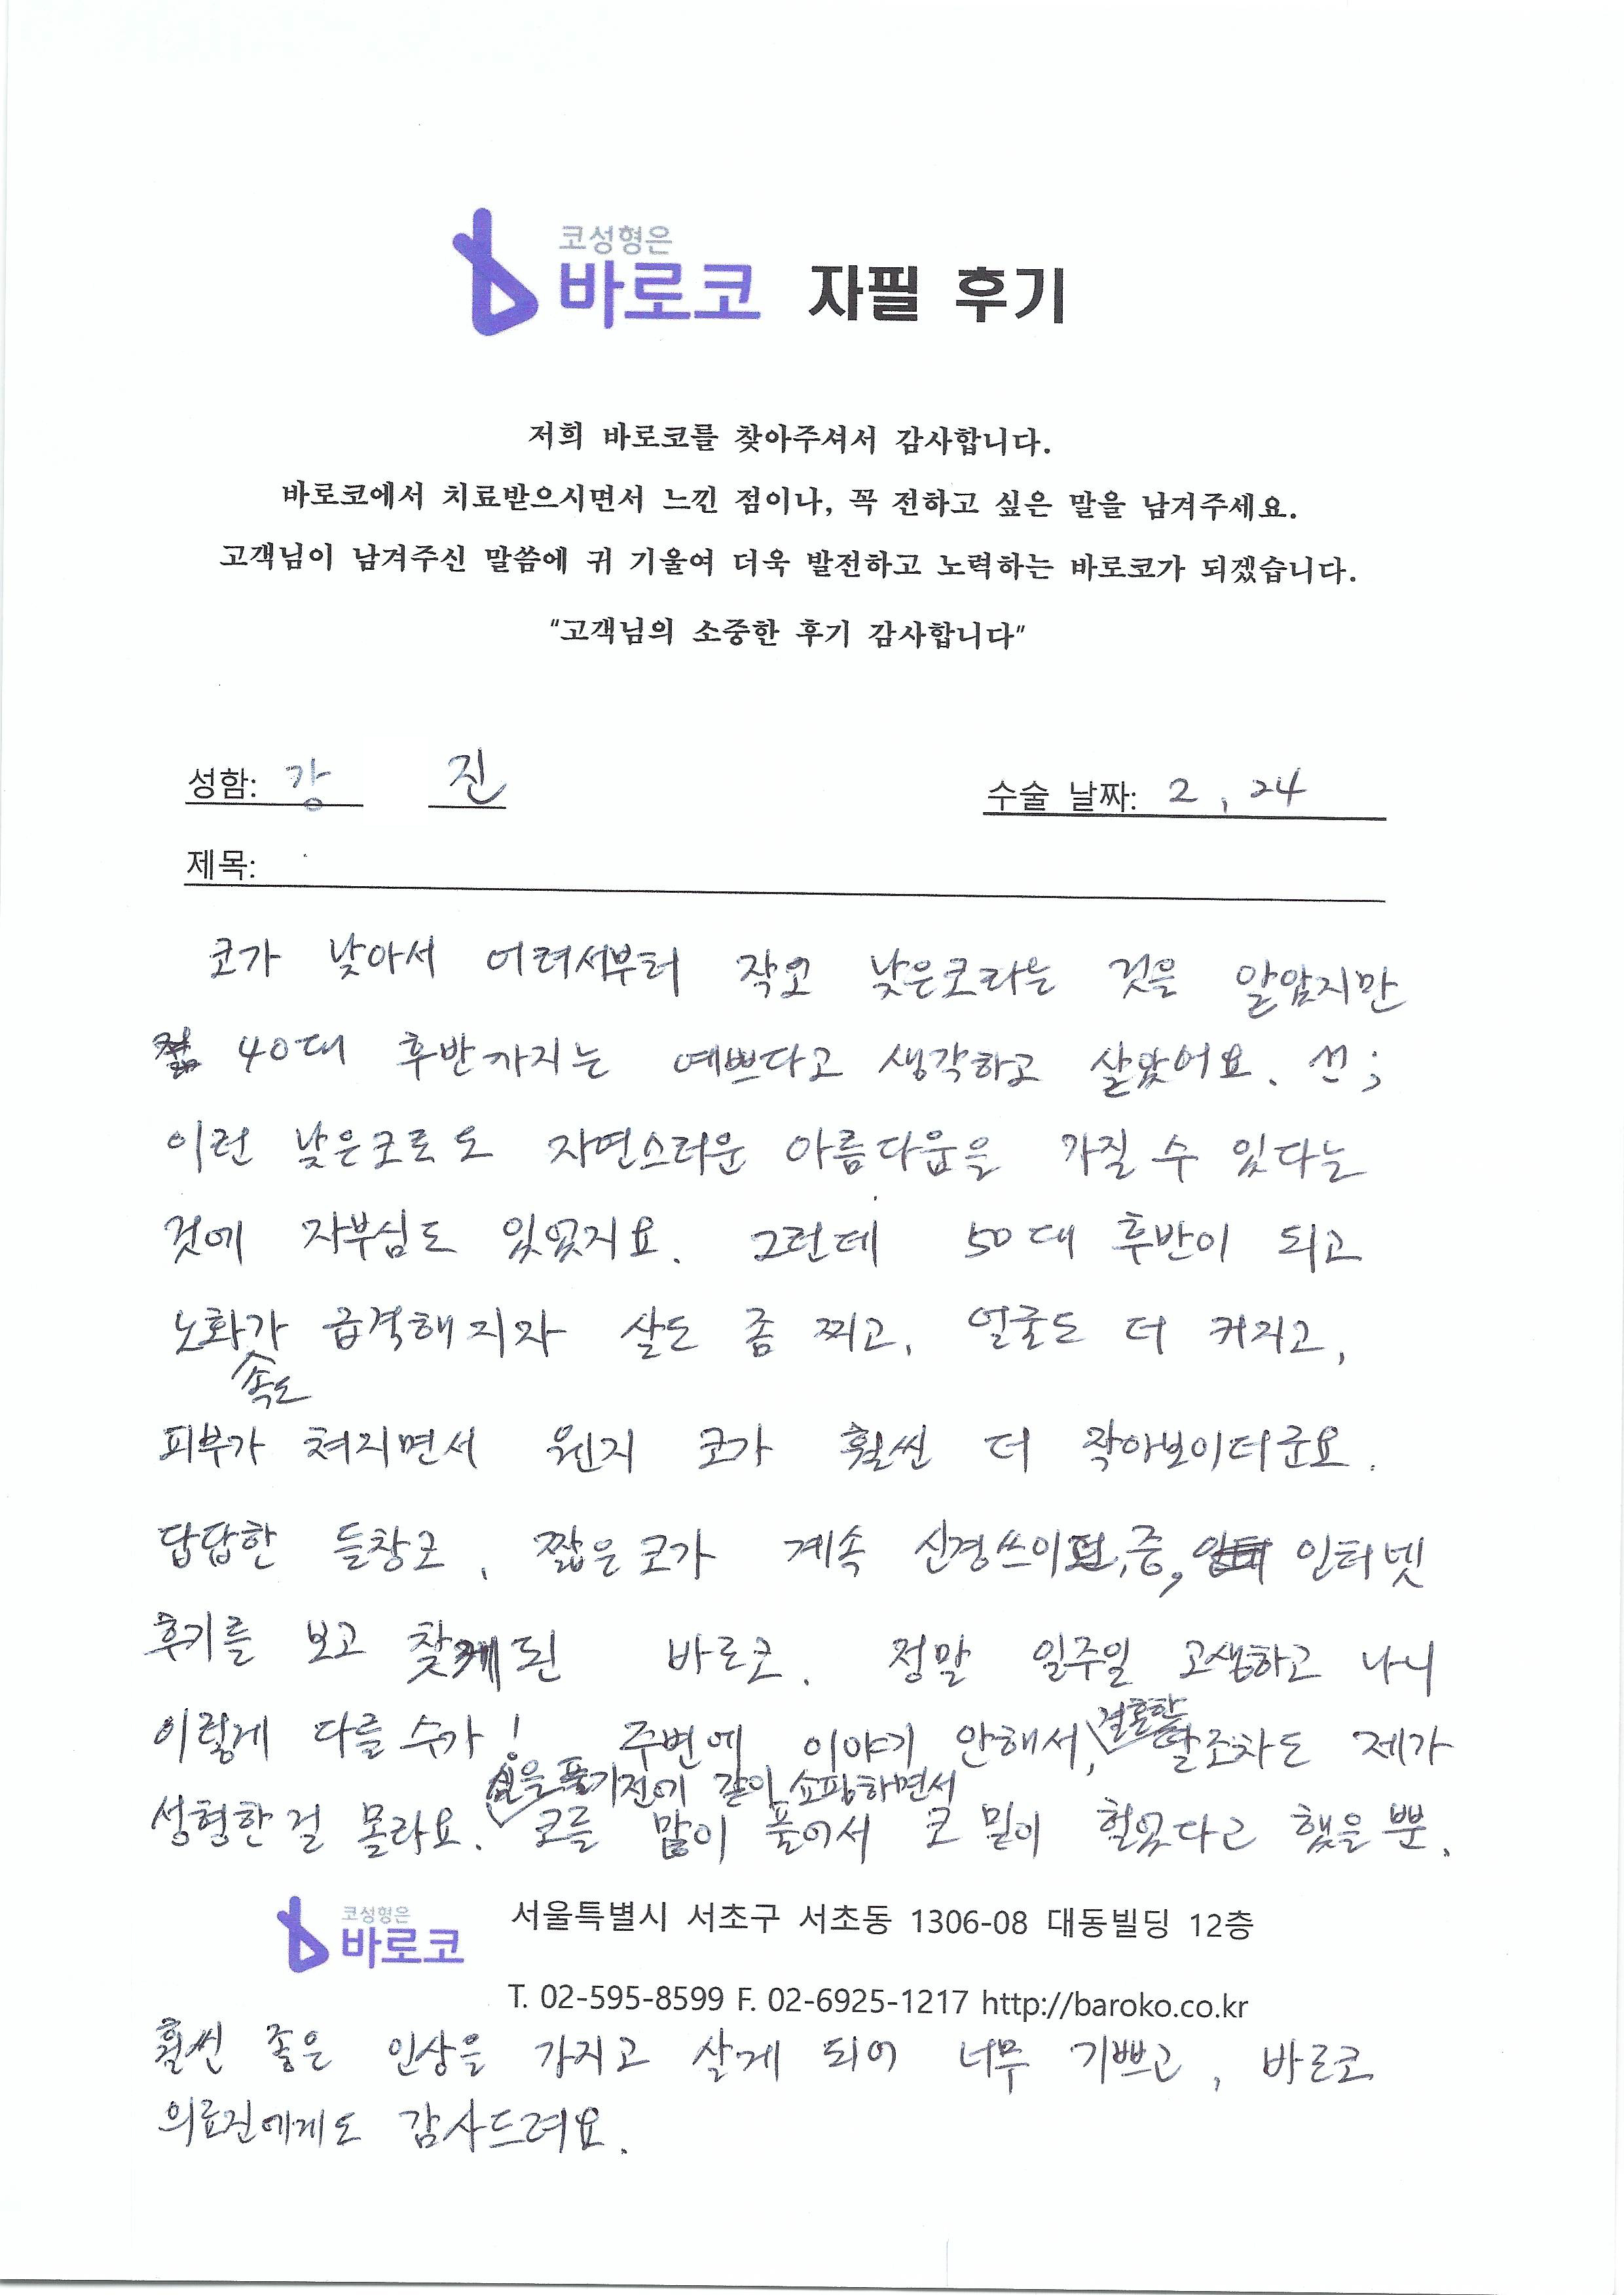 코성형은
바로코 자필 후기
저희 바로코를 찾아주셔서 감사합니다.
바로코에서 치료받으시면서 느낀 점이나, 꼭 전하고 싶은 말을 남겨주세요.
고객님이 남겨주신 말씀에 귀 기울여 더욱 발전하고 노력하는 바로코가 되겠습니다.
"고객님의 소중한 후기 감사합니다"
성함: 강 진 수술 날짜: 2, 24
제목:
코가 낮아서 어려서부터 작고 낮은코라는 것을 알았지만
40대 후반까지는 예쁘다고 생각하고 살았어요.
이런 낮은코로도 자연스러운 아름다움을 가질 수 있다는
것에 자부심도 있었지요. 그런데 50대 후반이 되고
노화가 급격해지자 살도 좀 찌고, 얼굴도 더 커지고,
속도
피부가 쳐지면서 웬지 코가 훨씬 더 작아보이더군요.
답답한 들창코, 짧은코가 계속 신경쓰이던 중, 인터넷
후기를 보고 찾게된 바로코. 정말 일주일 고생하고 나니
이렇게 다를 수가! 주변에 이야기 안해서, 결혼한 딸조차도 제가
실을 풀기전에 같이 쇼핑하면서
성형한 걸 몰라요. 코를 많이 풀어서 코 밑이 헐었다고 했을 뿐.
코성형은
바로코
서울특별시 서초구 서초동 1306-08 대동빌딩 12층
T. 02-595-8599 F. 02-6925-1217 http://baroko.co.kr
훨씬 좋은 인상을 가지고 살게 되어 너무 기쁘고, 바로코
의료진에게도 감사드려요.